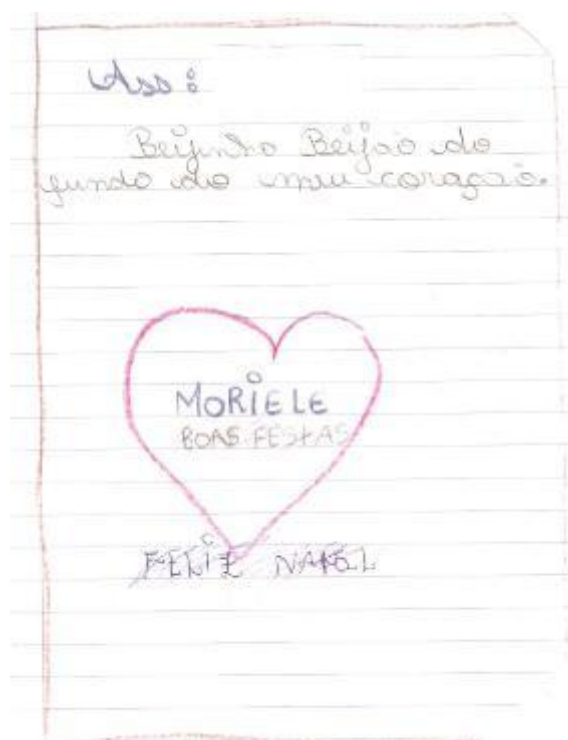 Ass:
Beijinho Beijão do
fundo do meu coração.
MORiELE
BOAS FESTAS
FELiZ NATAL